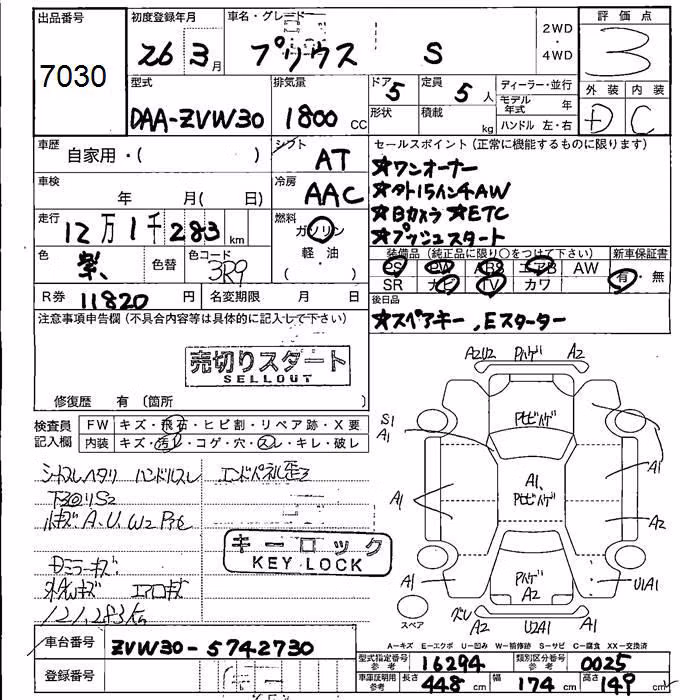 出品番号 7030
初度登録年月 26年 3月
車名・グレード プリウス S
2WD・4WD
評価点 3
外装 D 内装 C
型式 DAA-ZVW30
排気量 1800 CC
ドア 5 形状
定員 5人 積載 kg
ディーラー・並行
モデル年式 年
ハンドル 左・右
車歴 自家用・( )
シフト AT
車検 年 月( 日)
冷房 AAC
走行 12万1千283km
燃料 ガソリン 軽・油 ( ・ )
色 紫、 色替 色コード 3R9
R券 11820円 名変期限 月 日
セールスポイント(正常に機能するものに限ります)
☆ワンオーナー
☆外15インチAW
☆Bカメラ ☆ETC
☆プッシュスタート
装備品(純正品に限り○をつけて下さい) 新車保証書
PS PW ABS エアB AW 有・無
SR ナビ TV カワ
後日品
☆スペアキー、Eスターター
注意事項申告欄(不具合内容等は具体的に記入して下さい)
売切りスタート
SELLOUT
修復歴 有 (箇所
検査員記入欄
FW キズ・飛石・ヒビ割・リペア跡・X要
内装 キズ・汚レ・コゲ・穴・スレ・キレ・破レ
シートスレヘタリ ハンドルスレ エンドパネル歪
キーロック
KEY LOCK
Bミラーキズ
エアロキズ
121,283km
車台番号 ZVW30-5742730
登録番号
A2U2 Pハゲ A2
S1
A1
PセビハゲA1
A1
A1、
Pセビハゲ
A1
A2
Pハゲ
A2
A1
U1A1
ズレ A2 U2A1 A2
スペア
A=キズ E=エクボ U=凹み W=補修跡 S=サビ C=腐食 XX=交換済
型式指定番号参考 16294 類別区分番号参考 0025
車庫証明用参考 長さ 448cm 幅 174cm 高さ 149cm